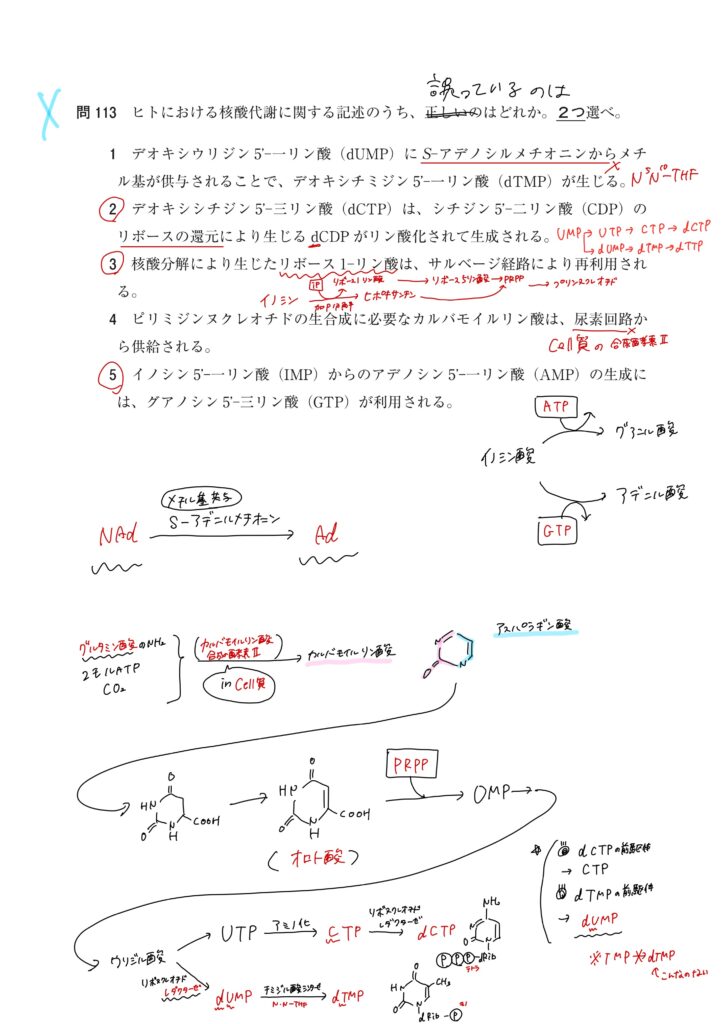 誤っているのは
問113 ヒトにおける核酸代謝に関する記述のうち、正しいのはどれか。2つ選べ。
1 デオキシウリジン5'-一リン酸（dUMP）にS-アデノシルメチオニンからメチ
ル基が供与されることで、デオキシチミジン5'-一リン酸（dTMP）が生じる。N⁵N¹⁰-THF
2 デオキシシチジン5'-三リン酸（dCTP）は、シチジン5'-二リン酸（CDP）の
リボースの還元により生じるdCDPがリン酸化されて生成される。UMP→UTP→CTP→dCTP
→dUMP→dTMP→dTTP
3 核酸分解により生じたリボース1-リン酸は、サルベージ経路により再利用され
る。 iP リボース1リン酸→リボース5リン酸→PRPP→プリンヌクレオチド
イノシン→ヒポキサンチン
4 ピリミジンヌクレオチドの生合成に必要なカルバモイルリン酸は、尿素回路か
ら供給される。 Cell質の合成酵素Ⅱ
5 イノシン5'-一リン酸（IMP）からのアデノシン5'-一リン酸（AMP）の生成に
は、グアノシン5'-三リン酸（GTP）が利用される。
ATP
グアニル酸
イノシン酸
アデニル酸
GTP
メチル基供与
S-アデニルメチオニン
NAd → Ad
アスパラギン酸
グルタミン酸のNH₂
2モルATP
CO₂
カルバモイルリン酸
合成酵素Ⅱ
in Cell質
カルバモイルリン酸
O N N
PRPP
O HN O N H COOH
O HN O N H COOH
→ OMP →
（オロト酸）
dCTPの前駆体
→ CTP
dTMPの前駆体
→ dUMP
※TMP→dTMP
↑こんなのない
ウリジル酸
UTP アミノ化→ CTP リボヌクレオチドレダクターゼ→ dCTP
NH₂ N O N
P P P dRib
リボヌクレオチド
レダクターゼ
dUMP チミジル酸シンターゼ→ dTMP
N·N-THF
O HN CH₃ O N
dRib-P